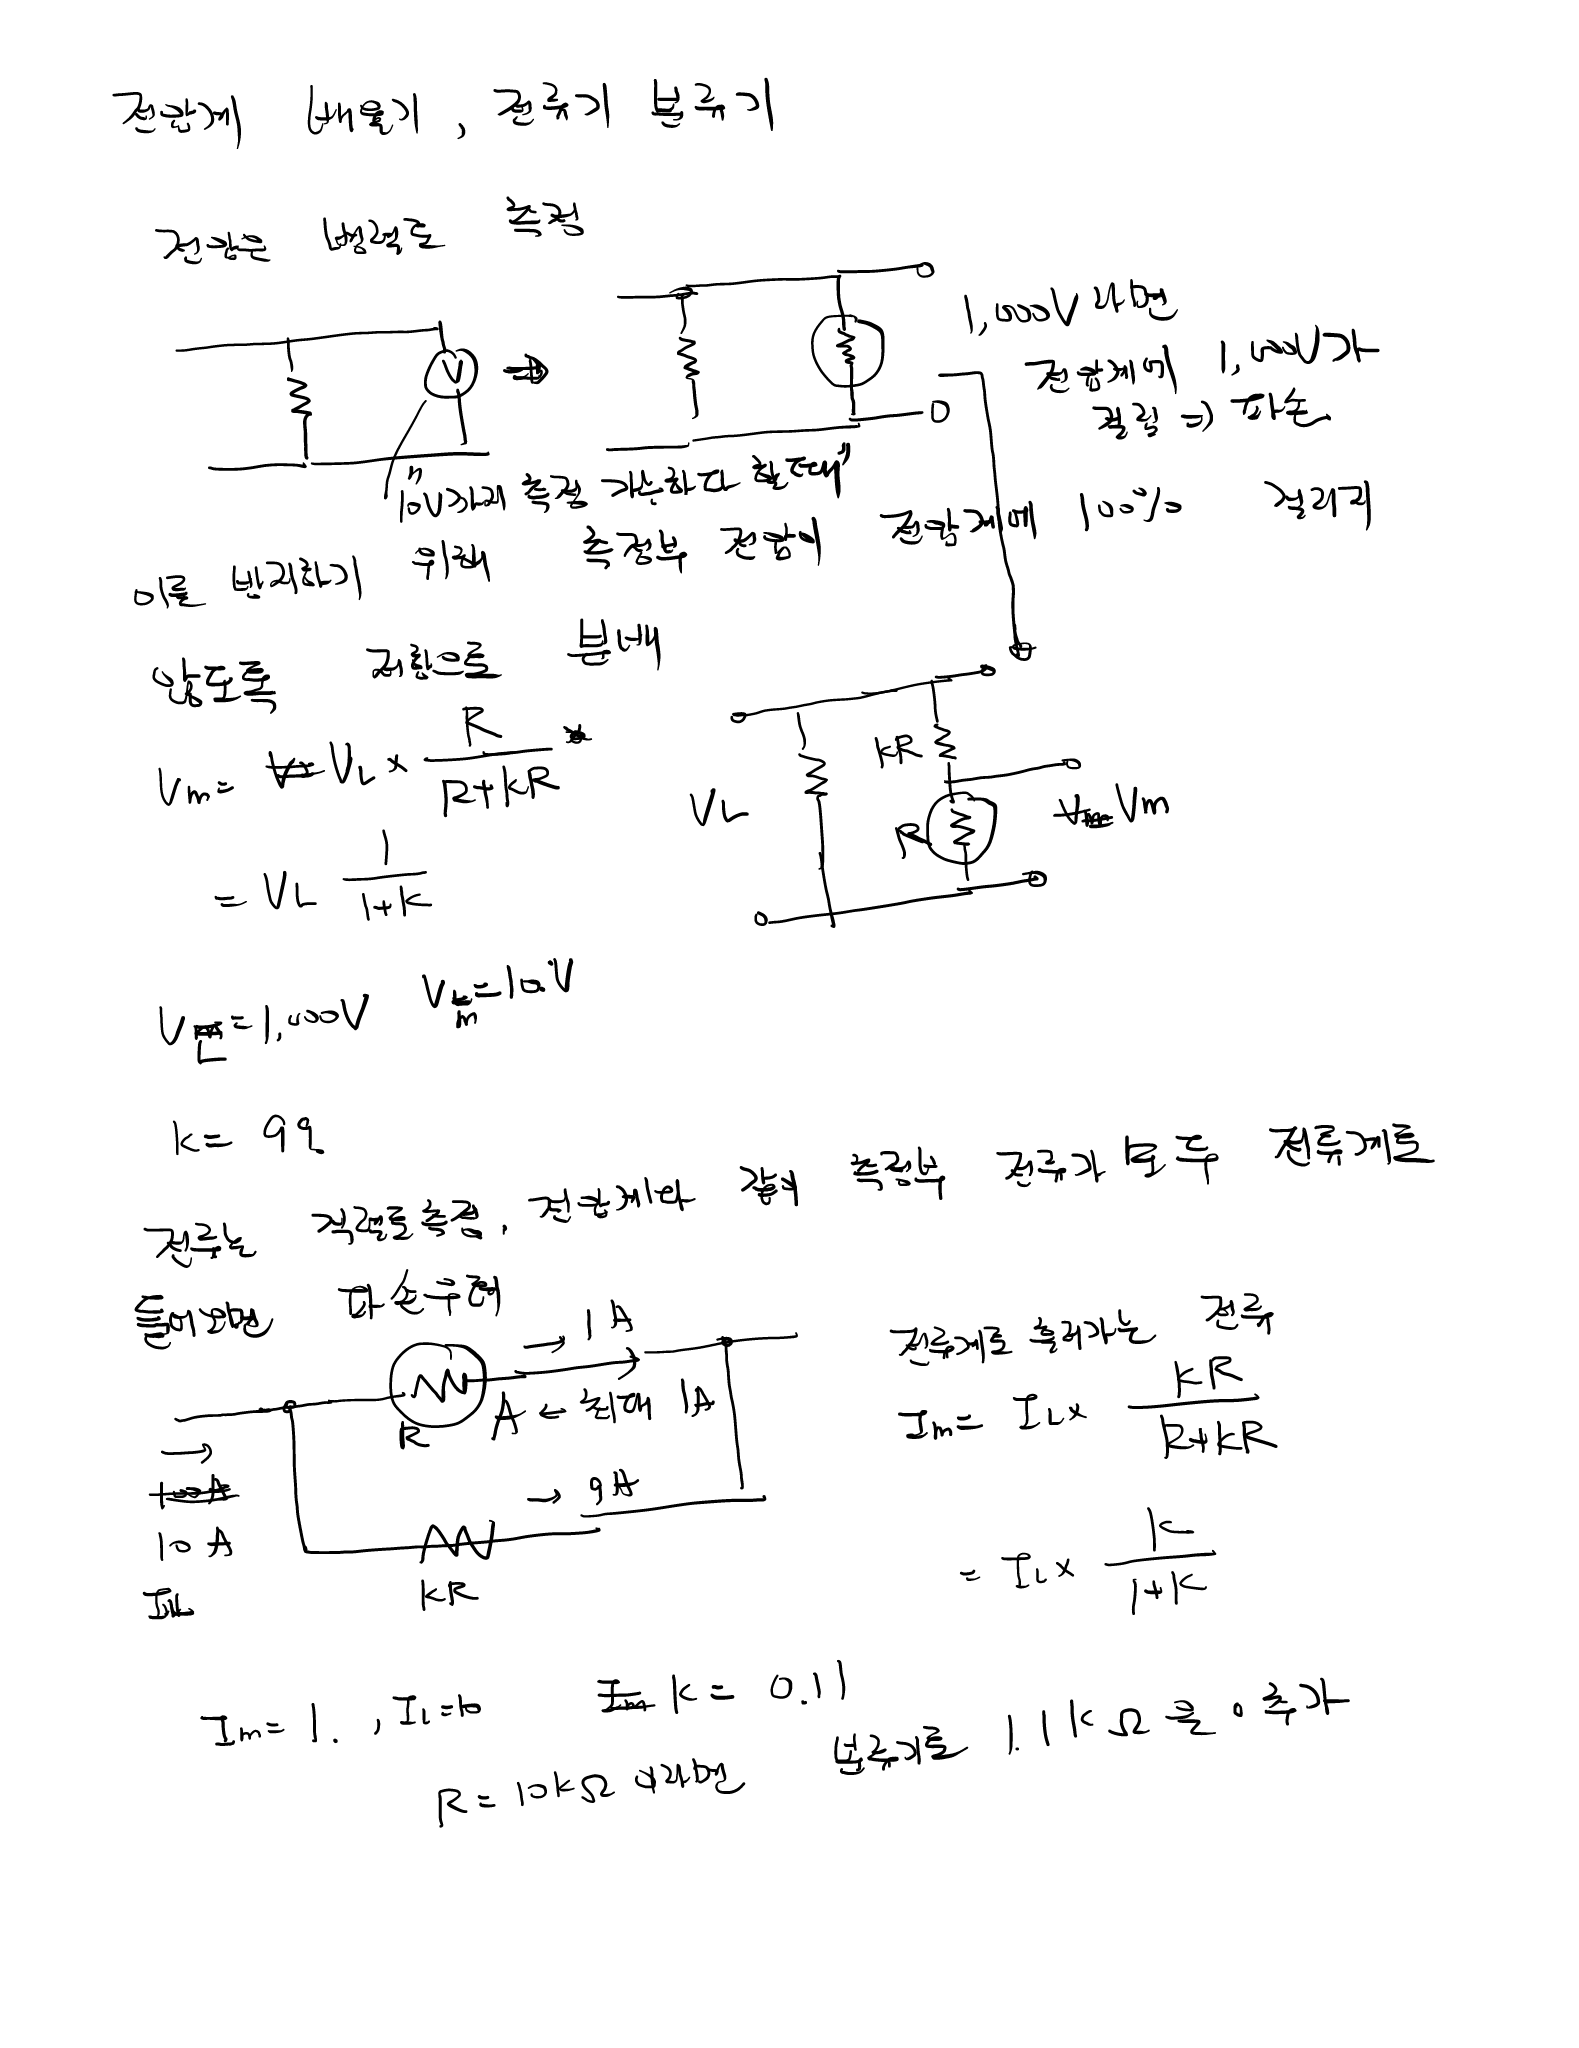 전압계 배율기, 전류기 분류기
전압은 병렬로 측정
V
1,000V 라면
전압계에 1,000V가
걸림 => 파손
"10V까지 측정 가능하다 할때"
이를 방지하기 위해 측정부 전압이 전압계에 100% 걸리지
않도록 저항으로 분배
Vm = VL × R / (R+kR)
= VL 1 / (1+k)
VL
kR
R
Vm
VL = 1,000V Vm = 10V
k = 99.
전류는 직렬로 측정. 전압계와 같이 측정부 전류가 모두 전류계로
들어오면 파손우려
→ 1A
R
A ← 최대 1A
→
10A
IL
→ 9A
kR
전류계로 흘러가는 전류
Im = IL × kR / (R+kR)
= IL × k / (1+k)
Im = 1., IL = 10 k = 0.11
R = 10kΩ 이라면 분류기로 1.1kΩ을 추가